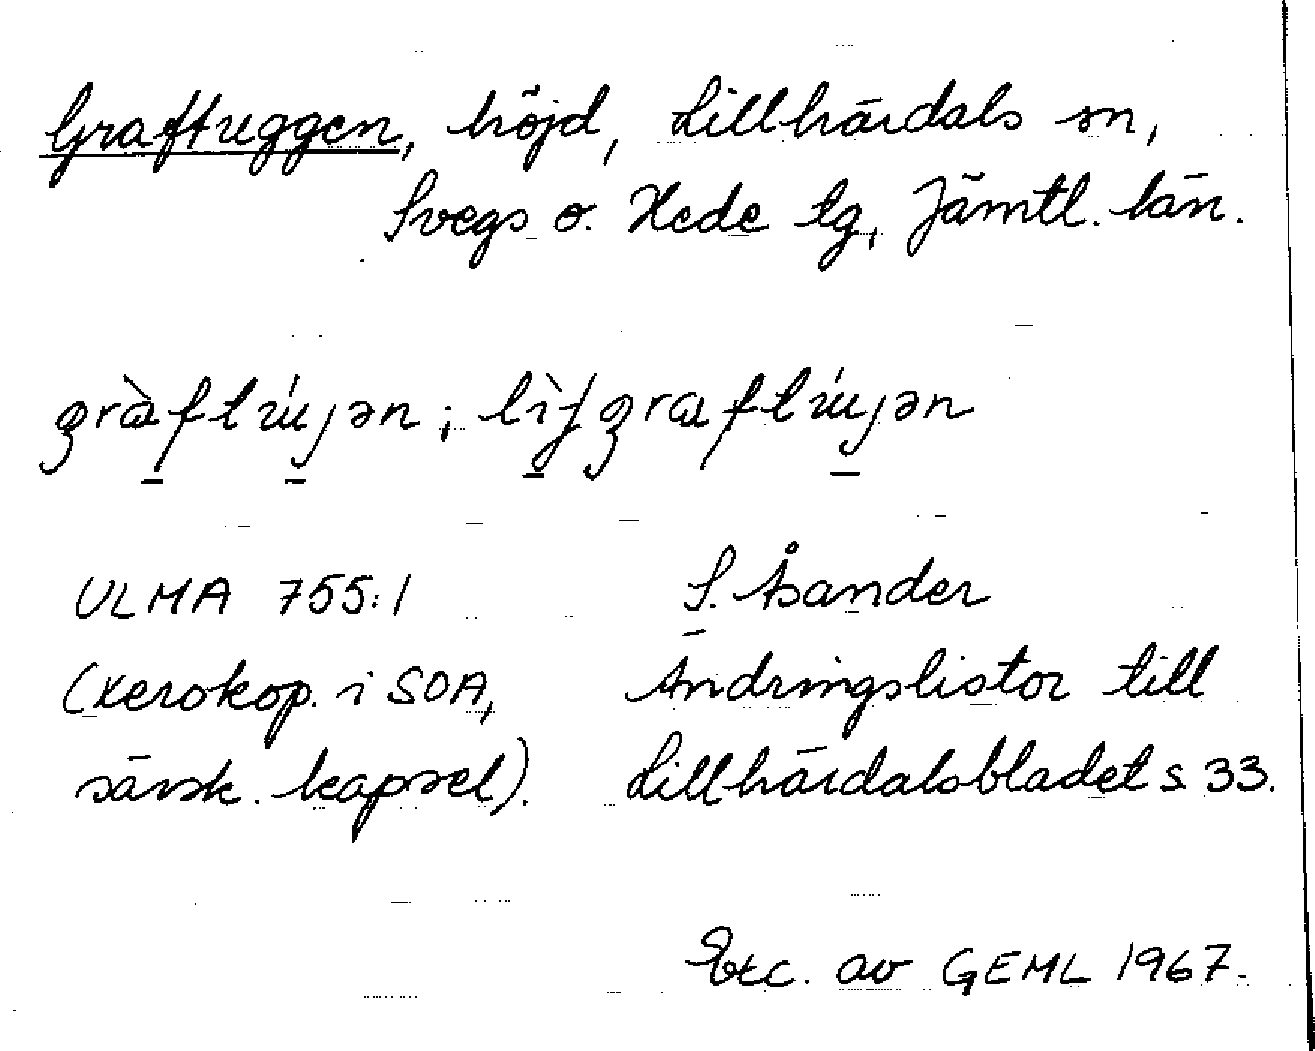 Graftuggen, höjd, Lillhärdals sn,
Svegs o. Hede tg, Jämtl. län.
ULMA 755:1 S. Åsander
(xerokop. i SOA, Ändringslistor till
särsk. kapsel). Lillhärdalsbladet s 33.
Exc. av GEML 1967.